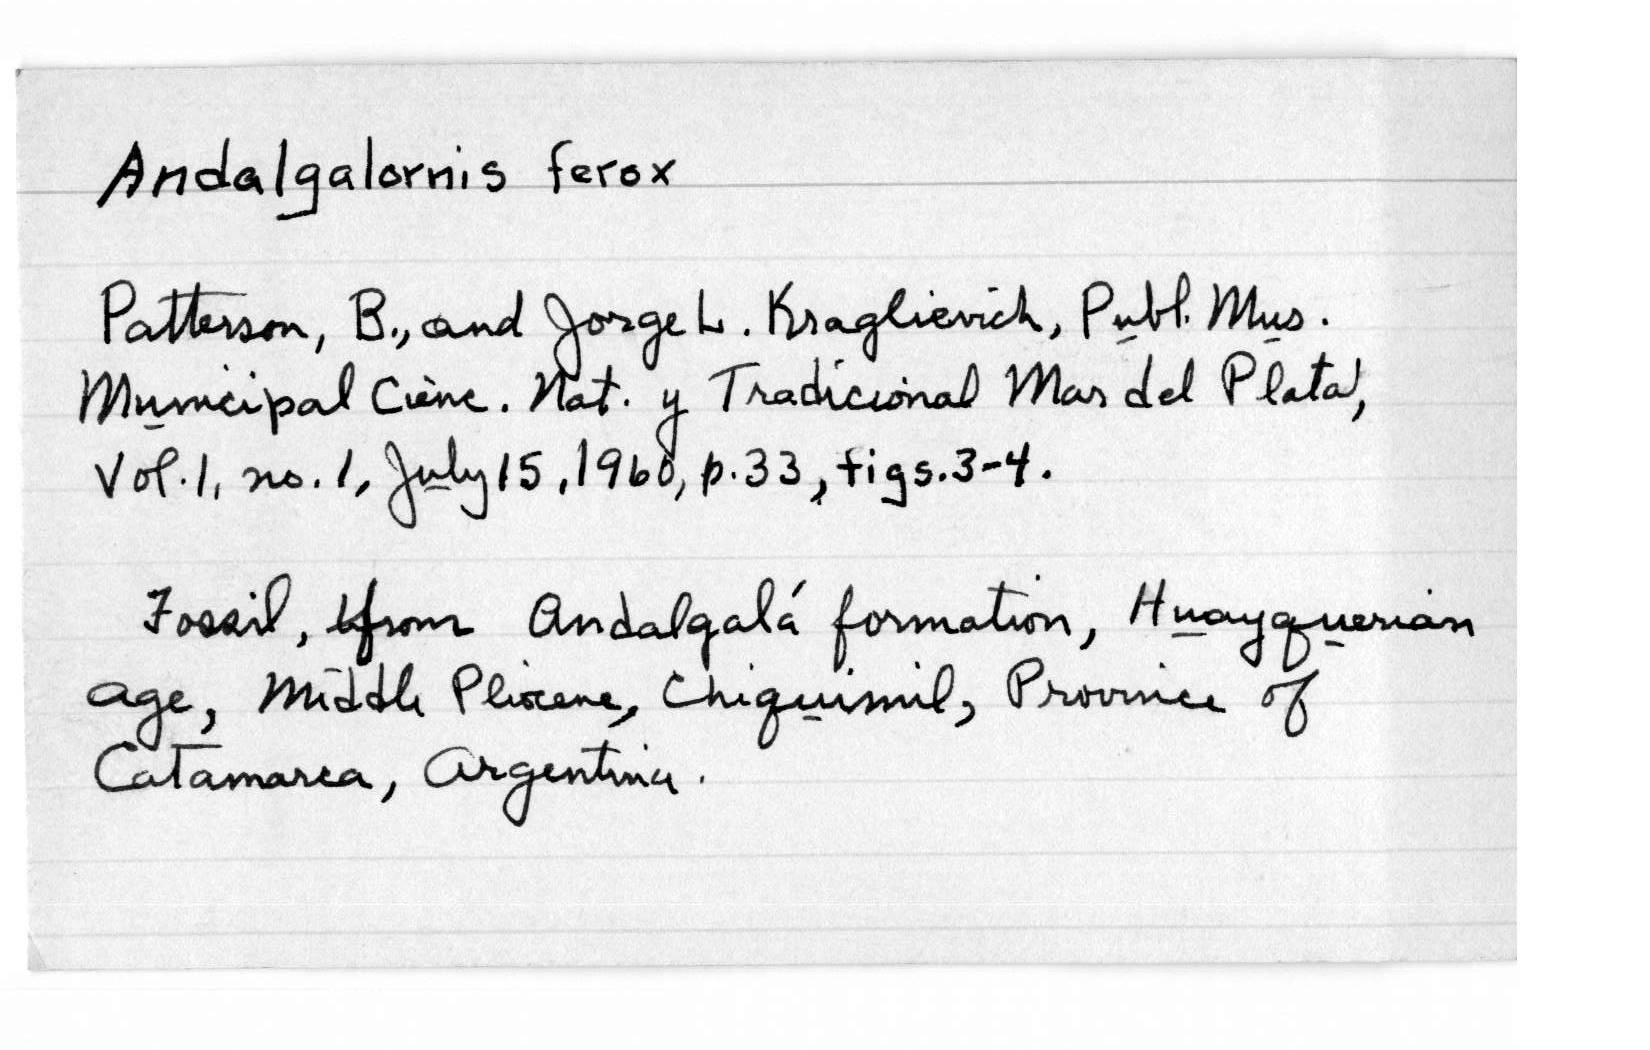 Andalgalornis ferox
Patterson, B., and Jorge L. Kraglievich, Publ. Mus.
Municipal Cienc. Nat. y Tradicional Mar del Plata,
Vol. 1, no. 1, July 15, 1960, p. 33, figs. 3-4.
Fossil, from Andalgalá formation, Huayquerian
age, Middle Pliocene, Chiquimil, Province of
Catamarca, Argentina.